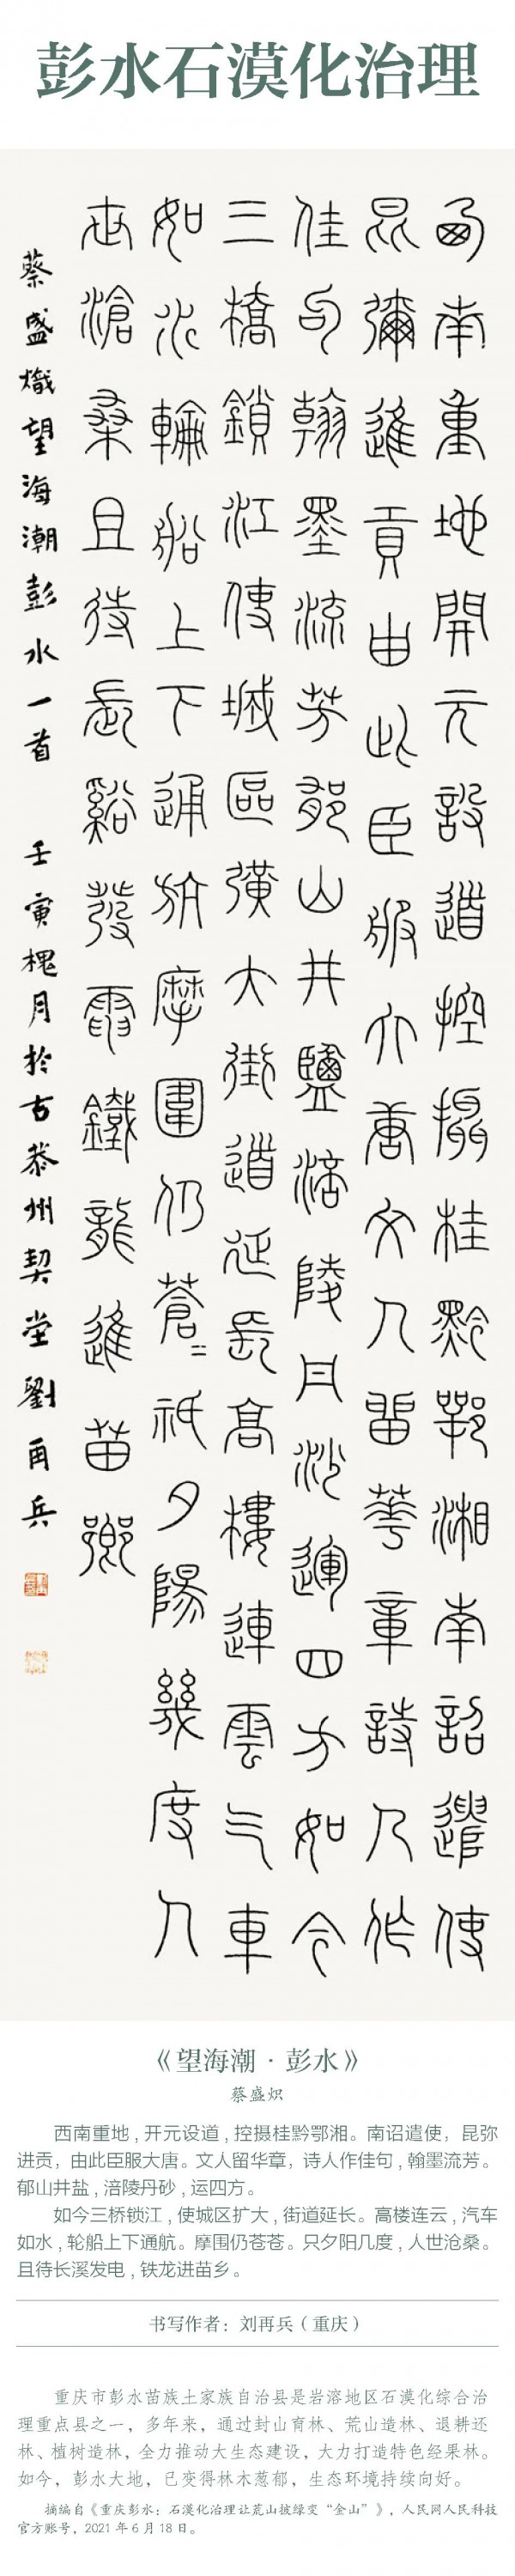 彭水石漠化治理
西南重地開元設道控攝桂黔鄂湘南詔遣使
昆彌進貢由此臣服大唐文人留華章詩人作
佳句翰墨流芳郁山井鹽涪陵丹沙運四方如今
三橋鎖江使城區彉大街道延長高樓連雲气車
如水輪船上下通航摩圍仍蒼〻祇夕陽幾度人
世滄桑且待長谿發電鐵龍進苗鄉
蔡盛熾望海潮彭水一首 壬寅槐月於古恭州契堂劉再兵
《望海潮·彭水》
蔡盛炽
西南重地,开元设道,控摄桂黔鄂湘。南诏遣使，昆弥
进贡，由此臣服大唐。文人留华章，诗人作佳句,翰墨流芳。
郁山井盐,涪陵丹砂,运四方。
如今三桥锁江,使城区扩大,街道延长。高楼连云,汽车
如水,轮船上下通航。摩围仍苍苍。只夕阳几度,人世沧桑。
且待长溪发电,铁龙进苗乡。
书写作者：刘再兵（重庆）
重庆市彭水苗族土家族自治县是岩溶地区石漠化综合治
理重点县之一，多年来，通过封山育林、荒山造林、退耕还
林、植树造林，全力推动大生态建设，大力打造特色经果林。
如今，彭水大地，已变得林木葱郁，生态环境持续向好。
摘编自《重庆彭水：石漠化治理让荒山披绿变“金山”》，人民网人民科技
官方账号，2021年6月18日。